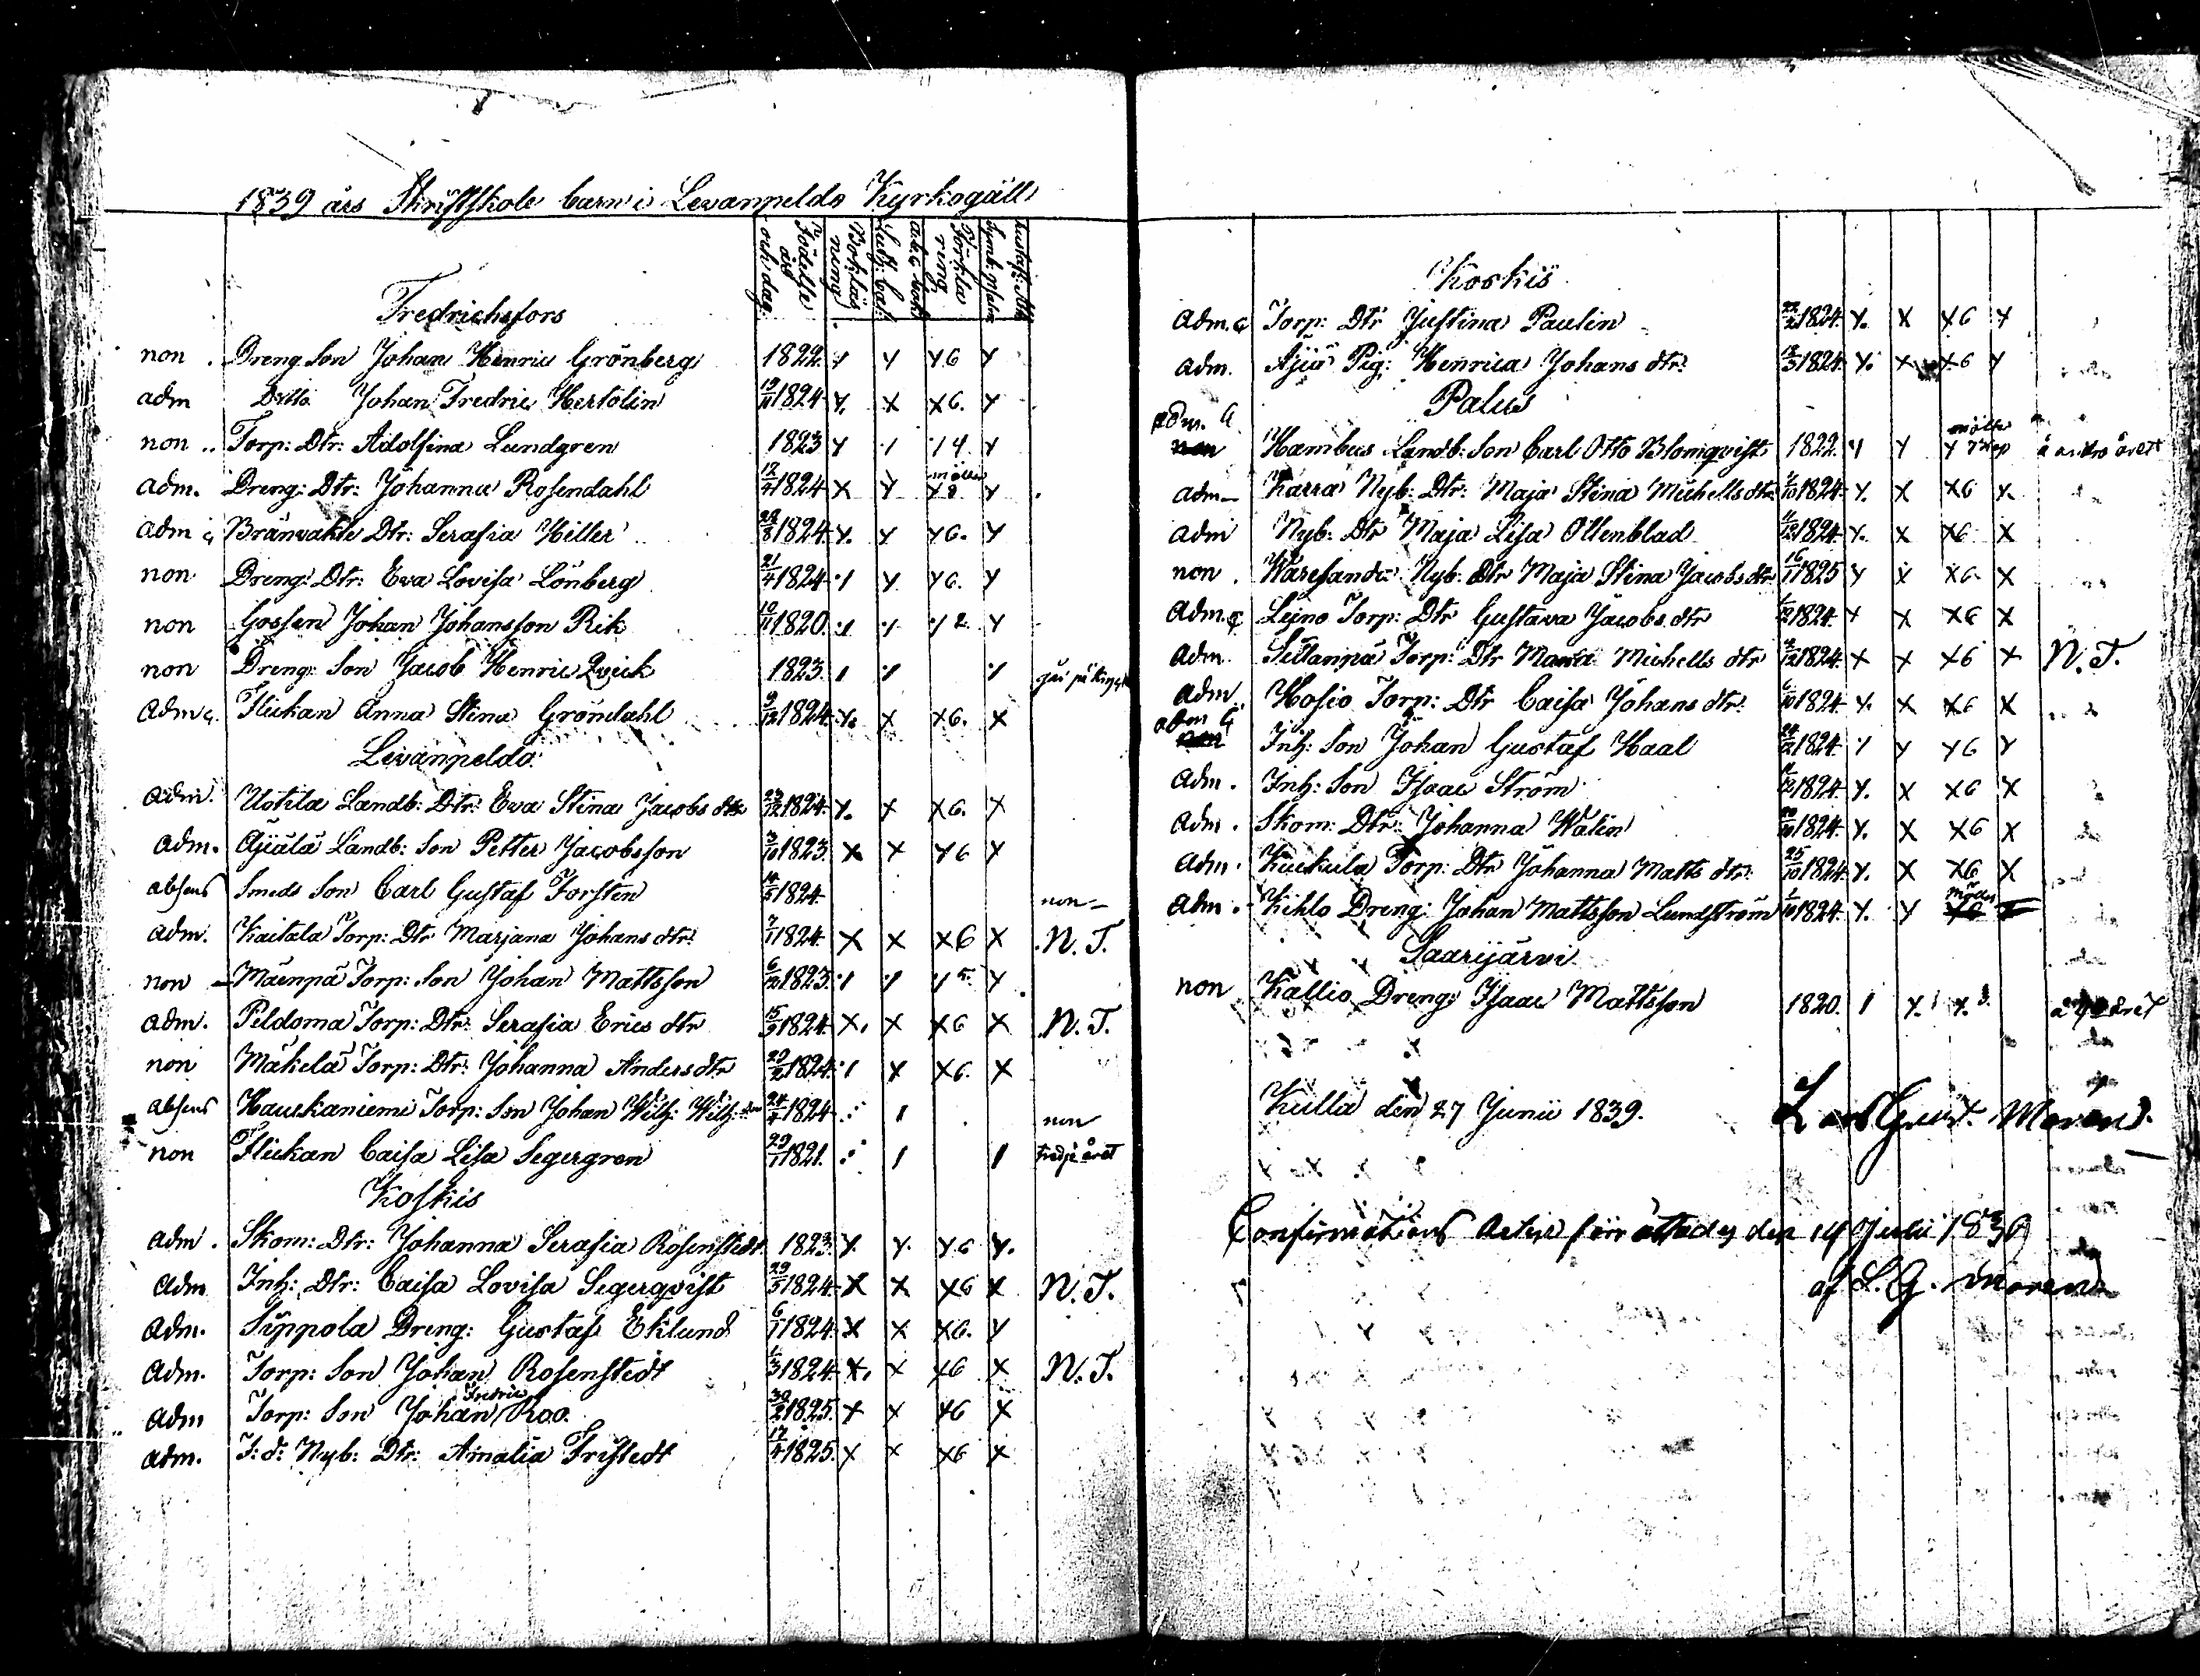 1839 års Skriftskole barn i Levanpeldo Kyrkogäll
Födelse år och dag. Bokläsning Luth: Cat: Förklaring
Fredrichsfors
non Dreng Son Johan Henric Grönberg 1822. y y y6 y
adm Ditto Johan Fredric Hertolin 19/11 1824 y. x x6. y
non Torp: Dtr: Adolfina Lundgren 1823 y ·/ ·/4. y
adm. Dreng: Dtr: Johanna Rosendahl 12/4 1824 x y y8 y
adm Bränvakts Dtr: Serafia Hiller 28/8 1824 y. y y6. y
non Dreng: Dtr: Eva Lovisa Lönberg 21/4 1824 ·/ y y6. y
non Gossen Johan Johansson Rik 10/11 1820. ·/ ·/ ·/2 y
non Dreng: Son Jacob Henric Qvick 1823. / ·/ ·/
adm Flickan Anna Stina Gröndahl 9/12 1824 y. x x6. x
Levanpeldo
adm. Uotila Landb: Dtr: Eva Stina Jacobs dtr 23/12 1824. y. x x6. x
adm. Äjälä Landb: Son Petter Jacobsson 3/10 1823. x x y6 y
absens Smeds Son Carl Gustaf Forstén 14/5 1824 non
adm. Kaitala Torp: Dtr Marjana Johans dtr 7/1 1824. x x x6 x N. T.
non Mäenpä Torp: Son Johan Mattsson 6/12 1823. ·/ ·/ ·/5 y
adm. Peldoma Torp: Dtr: Serafia Erics dtr 15/5 1824. x. x x6 x N. T.
non Mäkelä Torp: Dtr: Johanna Anders dtr 20/2 1824. ·/ x x6. x
absens Hauskaniemi Torp: Son Johan Wilh: Wilh: son 24/4 1824 / non
non Flickan Caisa Lisa Segergren 29/1 1821. / / tredje året
Koskis
adm. Skom: Dtr: Johanna Serafia Rosenstedt 1823. y. y. y6 y.
adm Inh: Dtr: Caisa Lovisa Segerqvist 29/5 1824 x x x6 x N. T.
adm. Sippola Dreng: Gustaf Eklund 6/1 1824 x x x6. y
adm. Torp: Son Johan Rosenstedt 1/3 1824 x. x x6 x N. T.
Fredric
adm Torp: Son Johan Roo. 30/2 1825. x x x6 x
adm. F: d: Nyb: Dtr: Amalia Fristedt 17/4 1825. x x x6 x
Koskis
adm. Torp: Dtr Justina Paulin 22/2 1824. y. x x6 y
adm. Äjiä Pig: Henrica Johans dtr: 18/3 1824 y. x x6 y
Palus
adm.
non Hambus Landb: Son Carl Otto Blomqvist 1822. y y y andra året
adm Karra Nyb: Dtr: Maja Stina Michells dtr 1/10 1824 y. x x6 x
adm Nyb: Dtr Maja Lisa Ollenblad 11/12 1824 y. x x6 x
non Waresanda Nyb: Dtr Maja Stina Jacobs dtr 16/1 1825 y x x6. x
adm. Lejno Torp: Dtr Gustava Jacobs dtr 1/12 1824 y x x6 x
adm. Sillanpä Torp: Dtr Maria Michells dtr 1824. x x x6 x N. T.
adm Hosio Torp: Dtr Caisa Johans dtr 6/10 1824 y. x x6 x
adm
non Inh: Son Johan Gustaf Haal 24/12 1824. / y y6 y
adm. Inh: Son Isaac Ström 11/12 1824. y. x x6 x
adm. Skom: Dtr: Johanna Walin 1824. y. x x6 x
adm. Kuckula Torp: Dtr Johanna Matts dtr: 25/10 1824. y. x x6 x
adm. Kihlo Dreng: Johan Mattsson Lundström 1/10 1824. y. y
Saarijärvi
non Kallio Dreng: Isaac Mattsson 1820. /
Kulla den 27 Junii 1839. Lars Gust. Moren
Confirmations Acten förrättades den 14 Julii 1839
af L. G. Moren